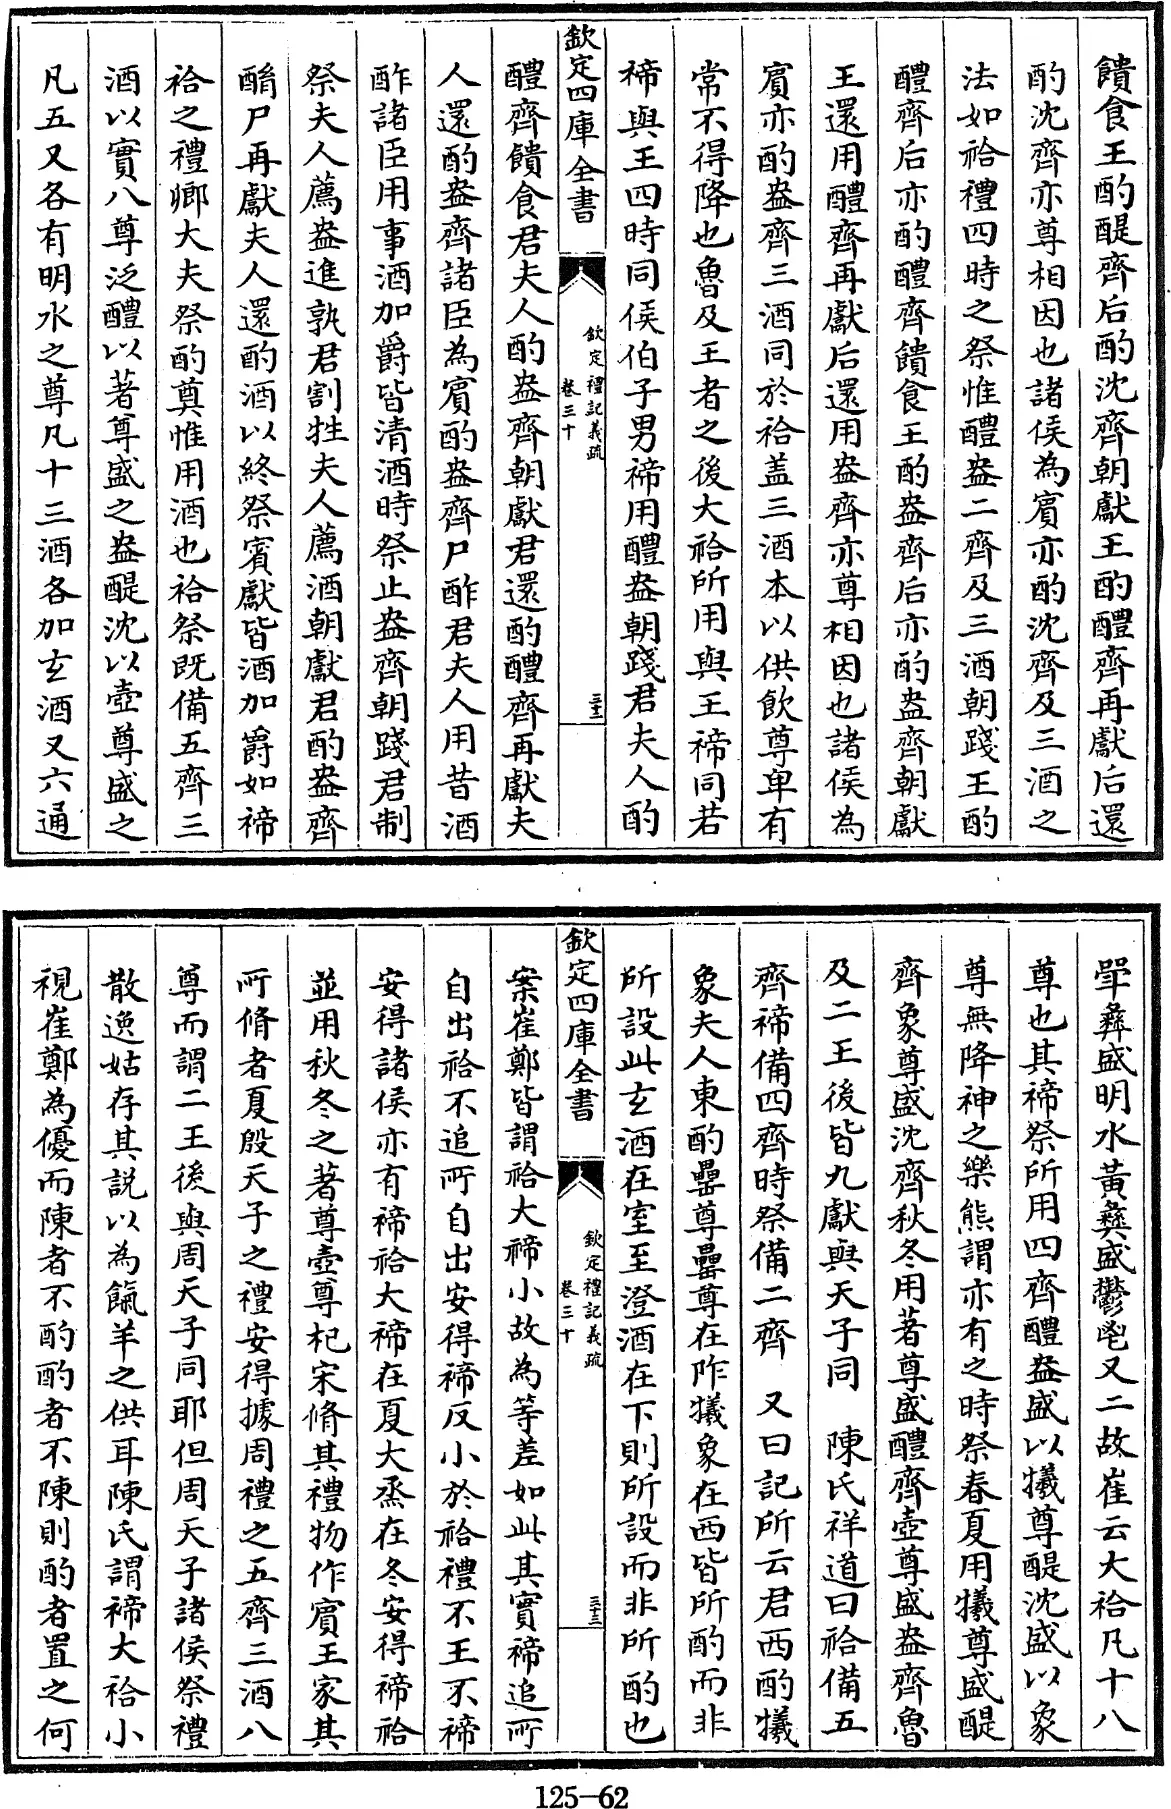 饋食王酌醍齊后酌沈齊朝獻王酌醴齊再獻后還
酌沈齊亦尊相因也諸侯為賔亦酌沈齊及三酒之
法如祫禮四時之祭惟醴盎二齊及三酒朝踐王酌
醴齊后亦酌醴齊饋食王酌盎齊后亦酌盎齊朝獻
王還用醴齊再獻后還用盎齊亦尊相因也諸侯為
賔亦酌盎齊三酒同於祫盖三酒本以供飲尊卑有
常不得降也魯及王者之後大祫所用與王禘同若
禘與王四時同侯伯子男禘用醴盎朝踐君夫人酌
欽定四庫全書
欽定禮記義疏
卷三十
三十二
醴齊饋食君夫人酌盎齊朝獻君還酌醴齊再獻夫
人還酌盎齊諸臣為賔酌盎齊尸酢君夫人用昔酒
酢諸臣用事酒加爵皆清酒時祭止盎齊朝踐君制
祭夫人薦盎進孰君割牲夫人薦酒朝獻君酌盎齊
酳尸再獻夫人還酌酒以終祭賔獻皆酒加爵如禘
祫之禮卿大夫祭酌奠惟用酒也祫祭既備五齊三
酒以實八尊泛醴以著尊盛之盎醍沈以壺尊盛之
凡五又各有明水之尊凡十三酒各加玄酒又六通
斚彝盛明水黃彝盛鬱鬯又二故崔云大祫凡十八
尊也其禘祭所用四齊醴盎盛以犧尊醍沈盛以象
尊無降神之樂熊謂亦有之時祭春夏用犧尊盛醍
齊象尊盛沈齊秋冬用著尊盛醴齊壺尊盛盎齊魯
及二王後皆九獻與天子同　陳氏祥道曰祫備五
齊禘備四齊時祭備二齊　又曰記所云君西酌犧
象夫人東酌罍尊罍尊在阼犧象在西皆所酌而非
所設此玄酒在室至澄酒在下則所設而非所酌也
欽定四庫全書
欽定禮記義疏
卷三十
三十三
案崔鄭皆謂祫大禘小故為等差如此其實禘追所
自出祫不追所自出安得禘反小於祫禮不王不禘
安得諸侯亦有禘祫大禘在夏大烝在冬安得禘祫
並用秋冬之著尊壺尊杞宋脩其禮物作賔王家其
所脩者夏殷天子之禮安得據周禮之五齊三酒八
尊而謂二王後與周天子同耶但周天子諸侯祭禮
散逸姑存其説以為餼羊之供耳陳氏謂禘大祫小
視崔鄭為優而陳者不酌酌者不陳則酌者置之何
125-62